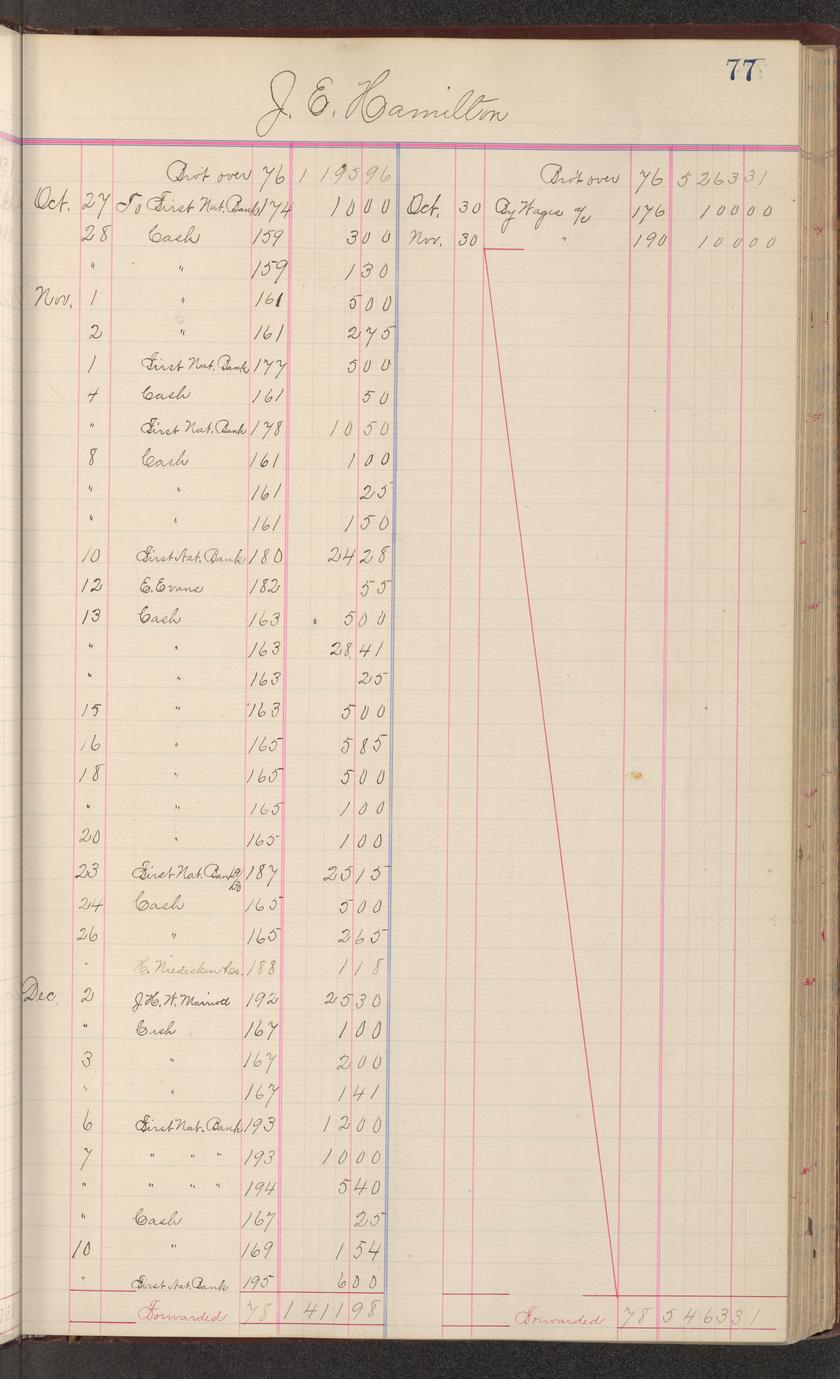 77
J. E. Hamilton
Bro't over 76 1 195 96 Bro't over 76 5 263 31
Oct. 27 To First Nat. Bank 174 10 00 Oct. 30 By Wages a/c 176 100 00
28 Cash 159 3 00 Nov. 30 " 190 100 00
" " 159 1 30
Nov. 1 " 161 5 00
2 " 161 2 75
1 First Nat. Bank 177 5 00
4 Cash 161 50
" First Nat. Bank 178 10 50
8 Cash 161 1 00
" " 161 25
" " 161 1 50
10 First Nat. Bank 180 24 28
12 E. Evans 182 55
13 Cash 163 5 00
" " 163 28 41
" " 163 25
15 " 163 5 00
16 " 165 5 85
18 " 165 5 00
" " 165 1 00
20 " 165 1 00
23 First Nat. Bank 187 25 15
24 Cash 165 5 00
26 " 165 2 65
" H. Niedecken & Co. 188 1 18
Dec. 2 J. H. W. Marriott 192 25 30
" Cash 167 1 00
3 " 167 2 00
" " 167 1 41
6 First Nat. Bank 193 12 00
7 " " " 193 10 00
" " " " 194 5 40
" Cash 167 25
10 " 169 1 54
" First Nat. Bank 195 6 00
Forwarded 78 1 411 98 Forwarded 78 5 463 31